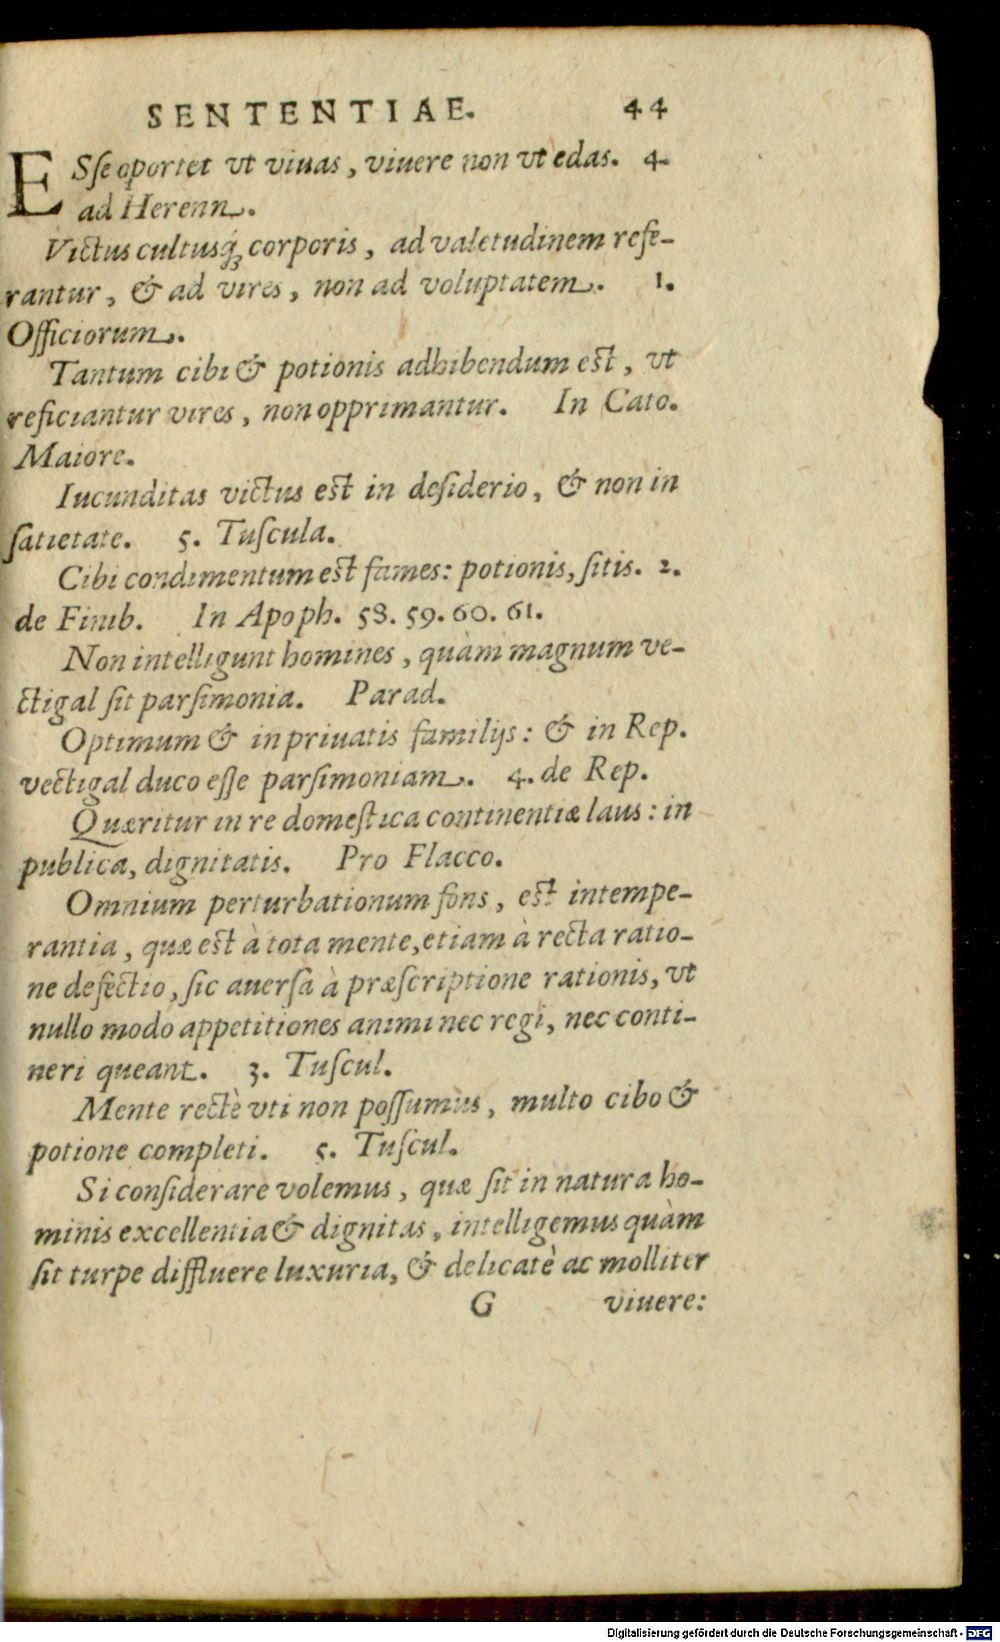 SENTENTIAE. 44
ESſe oportet vt viuas, viuere non vt edas. 4.
ad Herenn.
Victus cultusq́; corporis, ad valetudinem refe-
rantur, & ad vires, non ad voluptatem. 1.
Officiorum.
Tantum cibi & potionis adhibendum est, vt
reficiantur vires, non opprimantur. In Cato.
Maiore.
Iucunditas victus est in deſiderio, & non in
ſatietate. 5. Tuſcula.
Cibi condimentum est fames: potionis, ſitis. 2.
de Finib. In Apoph. 58. 59. 60. 61.
Non intelligunt homines, quàm magnum ve-
ctigal ſit parſimonia. Parad.
Optimum & in priuatis familijs: & in Rep.
vectigal duco eſſe parſimoniam. 4. de Rep.
Quæritur in re domeſtica continentiæ laus: in
publica, dignitatis. Pro Flacco.
Omnium perturbationum fons, est intempe-
rantia, quæ est à tota mente, etiam à recta ratio-
ne defectio, ſic auerſa à præſcriptione rationis, vt
nullo modo appetitiones animi nec regi, nec conti-
neri queant. 3. Tuſcul.
Mente rectè vti non poſſumus, multo cibo &
potione completi. 5. Tuſcul.
Si conſiderare volemus, quæ ſit in natura ho-
minis excellentia & dignitas, intelligemus quàm
ſit turpe diffluere luxuria, & delicatè ac molliter
G viuere:
Digitalisierung gefördert durch die Deutsche Forschungsgemeinschaft - DFG